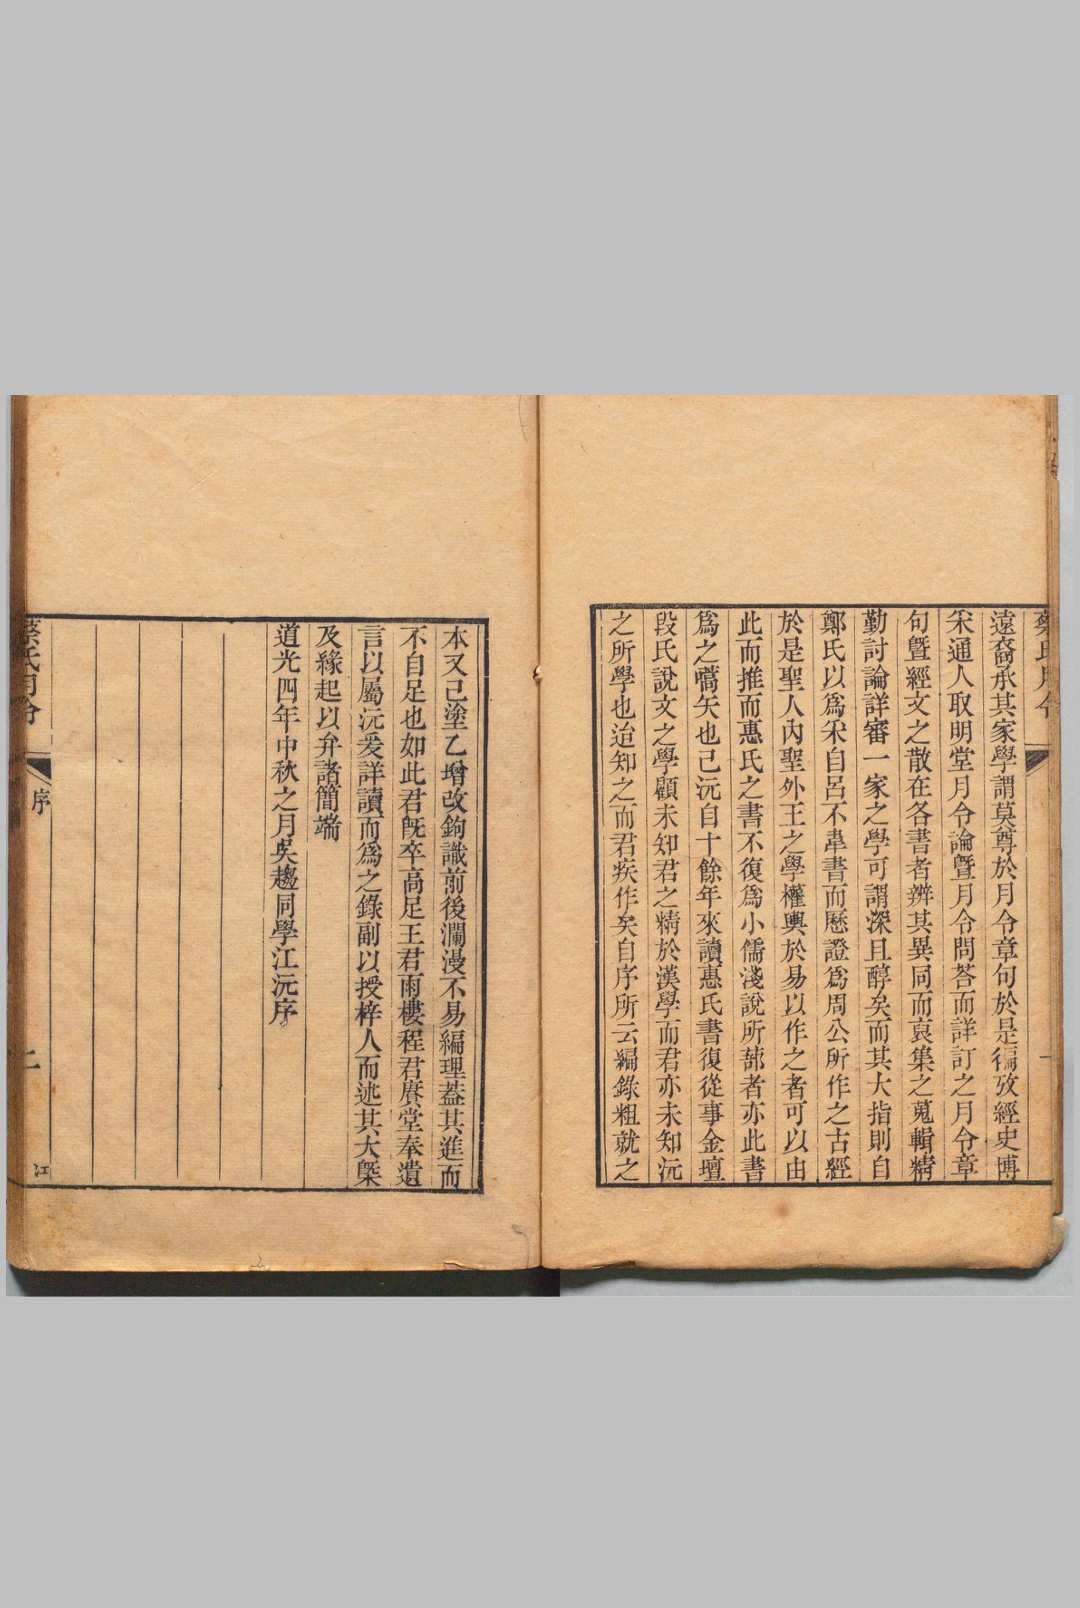 蔡氏月令
遠裔承其家學謂莫尊於月令章句於是徧攷經史博
宋通人取明堂月令論曁月令問荅而詳訂之月令章
句曁經文之散在各書者辨其異同而裒集之蒐輯精
勤討論詳審一家之學可謂深且醇矣而其大指則自
鄭氏以爲宋自呂不韋書而歷證爲周公所作之古經
於是聖人內聖外王之學權輿於易以作之者可以由
此而推而惠氏之書不復爲小儒淺說所蔀者亦此書
爲之嚆矢也已沅自十餘年來讀惠氏書復從事金壇
段氏說文之學顧未知君之精於漢學而君亦未知沅
之所學也迨知之而君疾作矣自序所云編錄粗就之
本又已塗乙增改鉤識前後瀾漫不易編理葢其進而
不自足也如此君旣卒高足王君雨樓程君賡堂奉遺
言以屬沅爰詳讀而爲之錄副以授梓人而述其大槩
及緣起以弁諸簡端
道光四年中秋之月吳趨同學江沅序
蔡氏月令
序
二
江